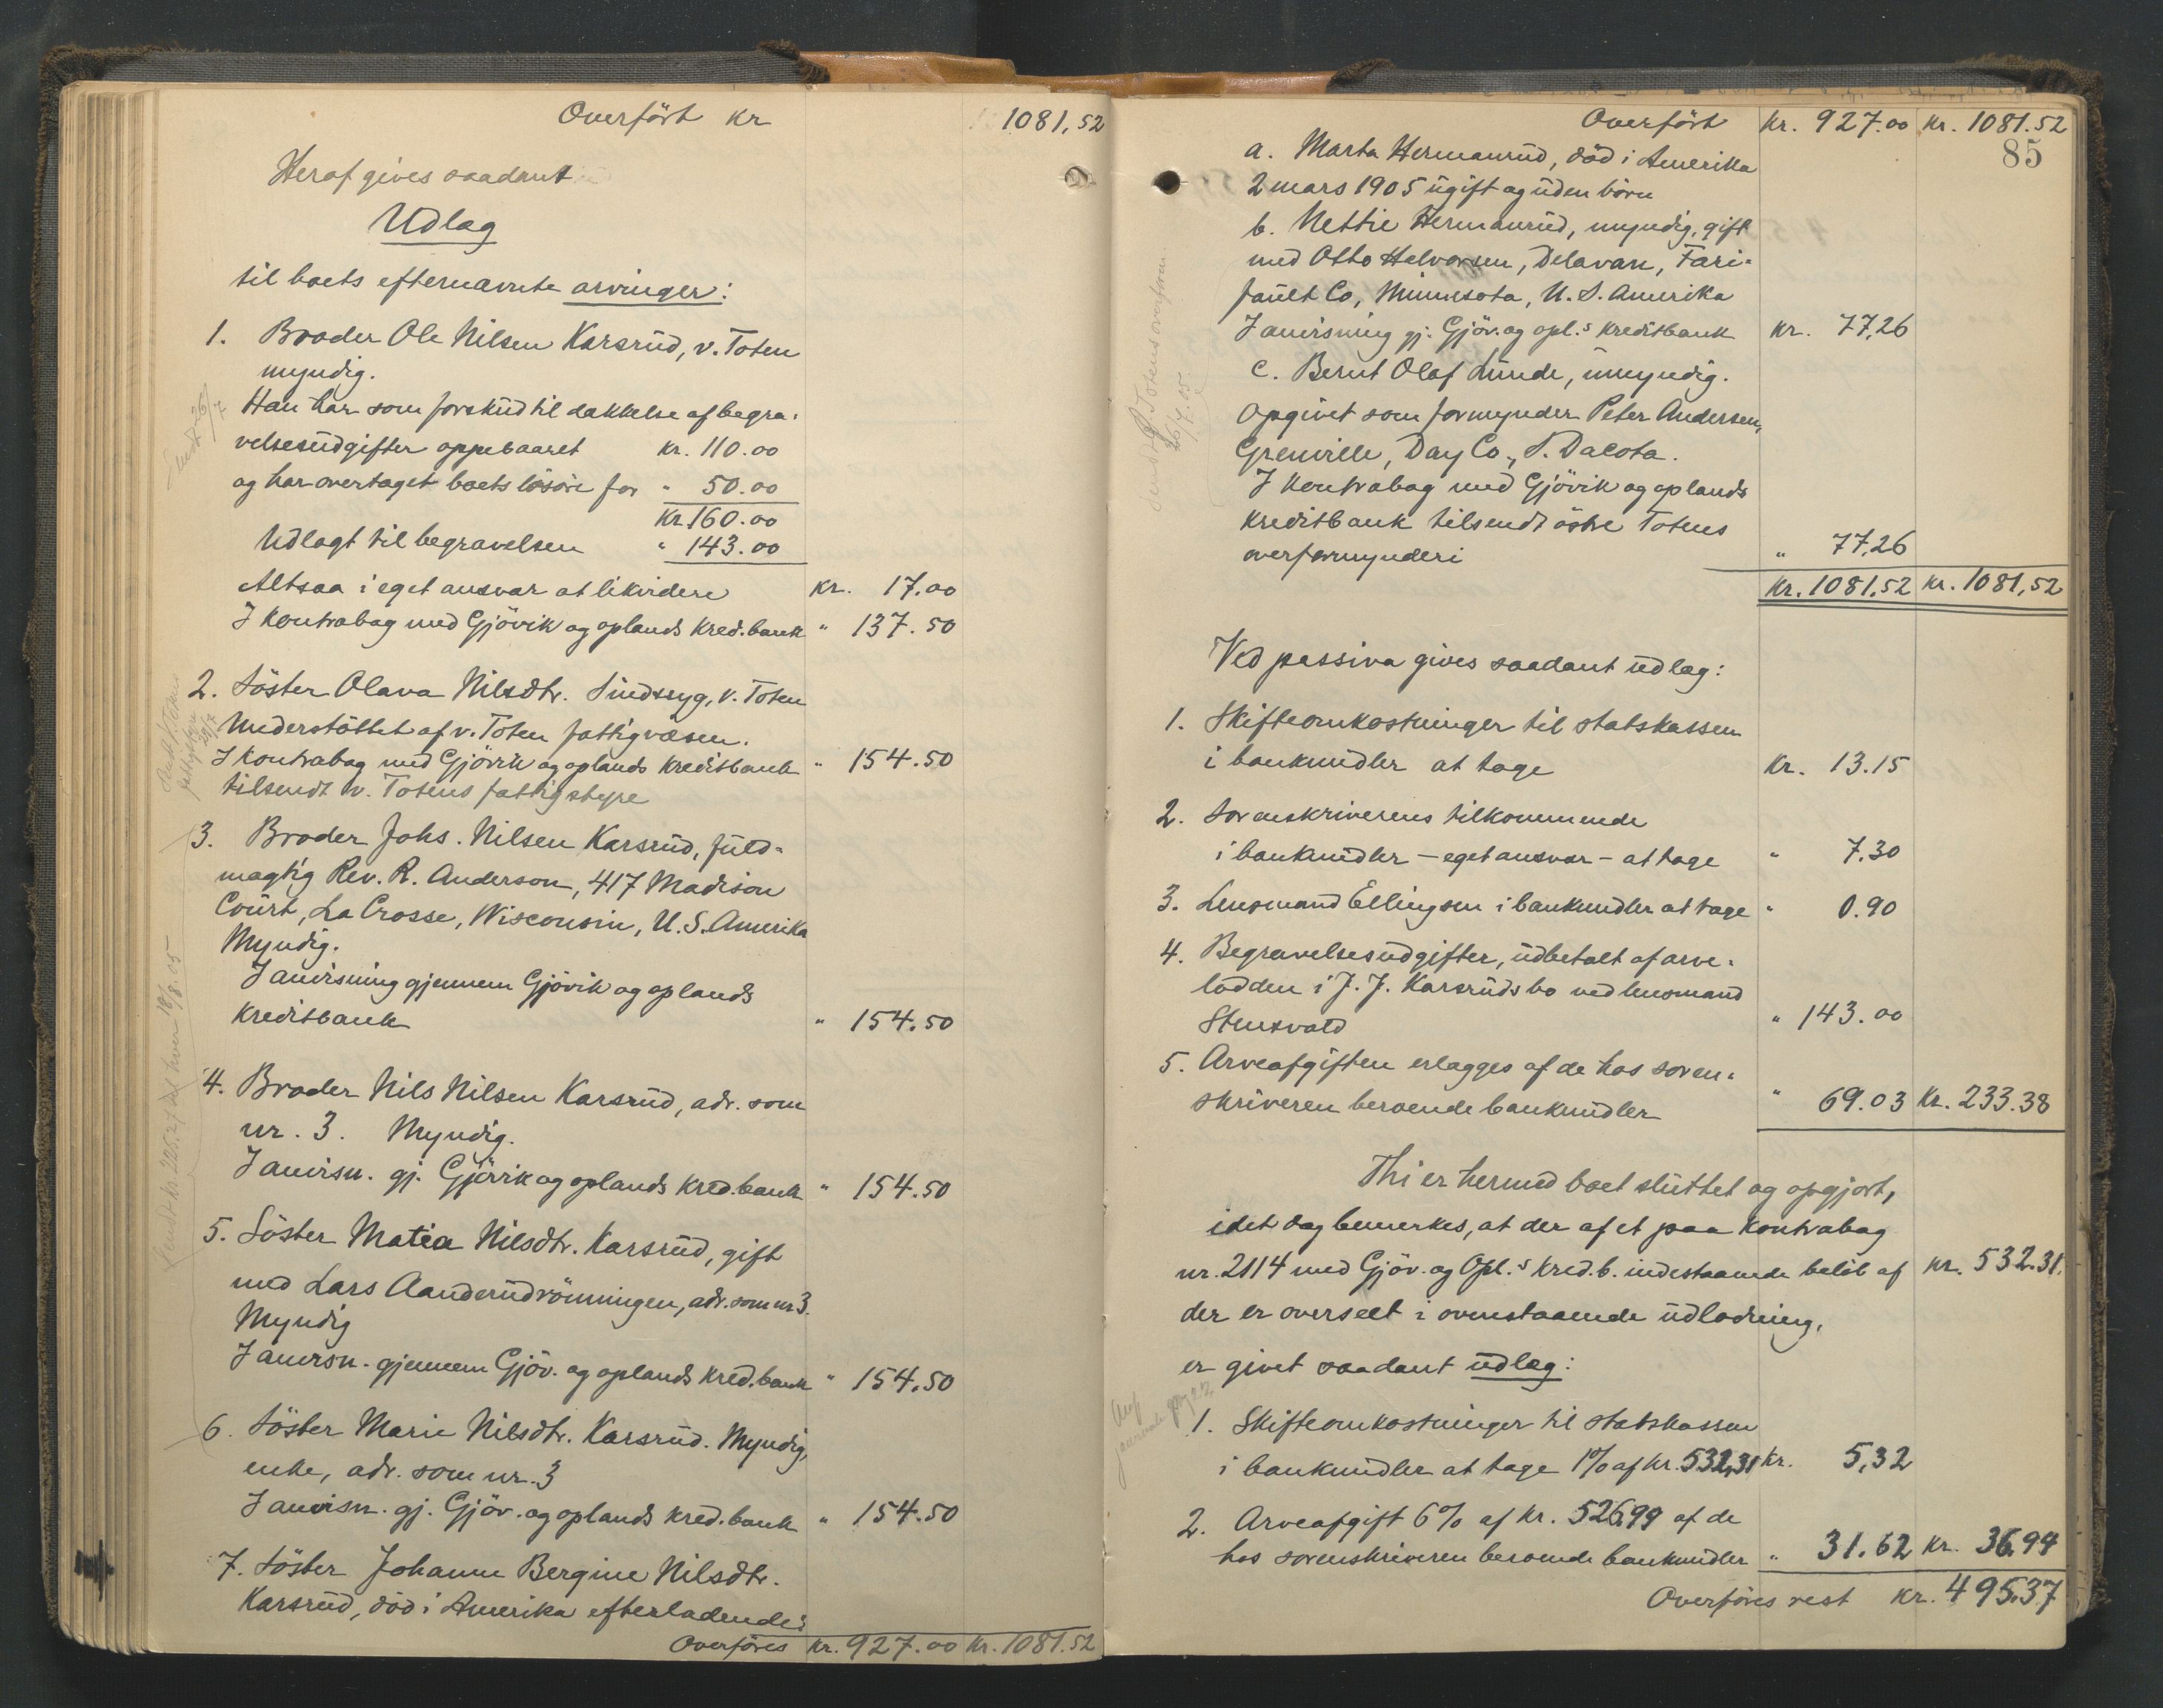 Overført kr 1081,52
Heraf gives saadant
Udlæg
til boets efternævnte arvinger:
1. Broder Ole Nilsen Karsrud, v. Toten
myndig.
Han har som forskud til dækkelse af begra-
velsesudgifter oppebaaret kr. 110.00
og har overtaget boets løsøre for " 50.00
kr. 160.00
Udlagt til begravelsen " 143.00
Altsaa i eget ansvar at likvidere kr. 17.00
I kontrabog med Gjøvik og oplands kred.bank " 137.50
2. Søster Olava Nilsdtr. Sindssyg, v. Toten
Understøttet af v. Toten fattigvæsen.
I kontrabog med Gjøvik og oplands kreditbank " 154.50
tilsendt v. Totens fattigstyre
3. Broder Johs. Nilsen Karsrud, fuld-
mægtig Rev. R. Anderson, 417 Madison
Court, La Crosse, Wisconsin, U.S. Amerika
Myndig.
I anvisning gjennem Gjøvik og oplands
kreditbank " 154.50
4. Broder Nils Nilsen Karsrud, adr. som
nr. 3. Myndig.
I anvisn. gj. Gjøvik og oplands kred.bank " 154.50
5. Søster Matea Nilsdtr. Karsrud, gift
med Lars Aanderudrønningen, adr. som nr 3.
Myndig
I anvisn. gjennem Gjøv. og oplands kred.bank " 154.50
6. Søster Marie Nilsdtr. Karsrud. Myndig,
enke, adr. som nr. 3
I anvisn. gj. Gjøv. og oplands kred.bank " 154.50
7. Søster Johanne Bergine Nilsdtr.
Karsrud, død i Amerika efterladende:
Overføres kr. 927.00 kr. 1081.52
Overført kr. 927.00 kr. 1081.52
85
a. Marta Hermanrud, død i Amerika
2 mars 1905 ugift og uden børn
b. Nettie Hermanrud, myndig, gift
med Otto Halvorsen, Delavan, Fari-
fault Co, Minnesota, U. S. Amerika
I anvisning gj. Gjøv. og opl.s kreditbank kr. 77,26
c. Bernt Olaf Lunde, umyndig.
Opgivet som formynder Peter Andersen,
Grenville, Day Co., S. Dacota.
I kontrabog med Gjøvik og oplands
kreditbank tilsendt østre Totens
overformynderi " 77,26
kr. 1081,52 kr. 1081,52
Ved passiva gives saadant udlæg:
1. Skifteomkostninger til statskassen
i bankmidler at tage kr. 13.15
2. Sorenskriverens tilkommende
i bankmidler – eget ansvar – at tage " 7.30
3. Lensmand Ellingsen i bankmidler at tage " 0.90
4. Begravelsesudgifter, udbetalt af arve-
lodden i J. J. Karsruds bo ved lensmand
Stensvold " 143.00
5. Arveafgiften erlægges af de hos soren-
skriveren beroende bankmidler " 69.03 kr. 233.38
Thi er hermed boet sluttet og opgjort,
idet dog bemerkes, at der af et paa kontrabog
nr. 2114 med Gjøv. og Opl.s kred.b. indestaaende beløb af kr. 532.31.
der er overseet i ovenstaaende udlodning,
er givet saadant udlæg:
1. Skifteomkostninger til statskassen
i bankmidler at tage 1% af kr. 532,31 kr. 5,32
2. Arveafgift 6% af kr. 526,99 af de
hos sorenskriveren beroende bankmidler " 31.62 kr. 36,94
Overføres rest kr. 495,37